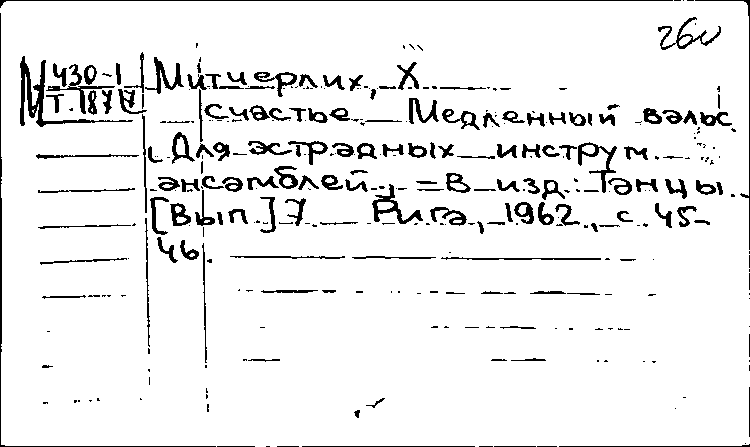 26u
М 430-1 Митчерлих, Х.
Т.1877 счастье. Медленный вальс.
(Для эстрадных инструм.
ансамблей.) = В изд.: Танцы.
[Вып.] 7. Рига, 1962, с. 45-
46.